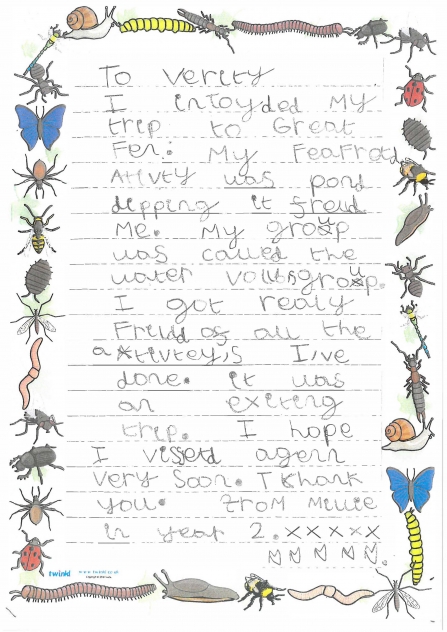 To Verity
I intoyded My
trip to Great
Fen. My Feafrotd
Ativty was pond
dipping it freud
Me. My group
was called the
water voulsgroup.
I got realy
Freudd of all the
activtey,s I,ve
done. it was
an exiting
trip. I hope
I vissetd agenn
Very Soon. Thank
you. From Millie
in year 2. x x x x x
twinkl www.twinkl.co.uk